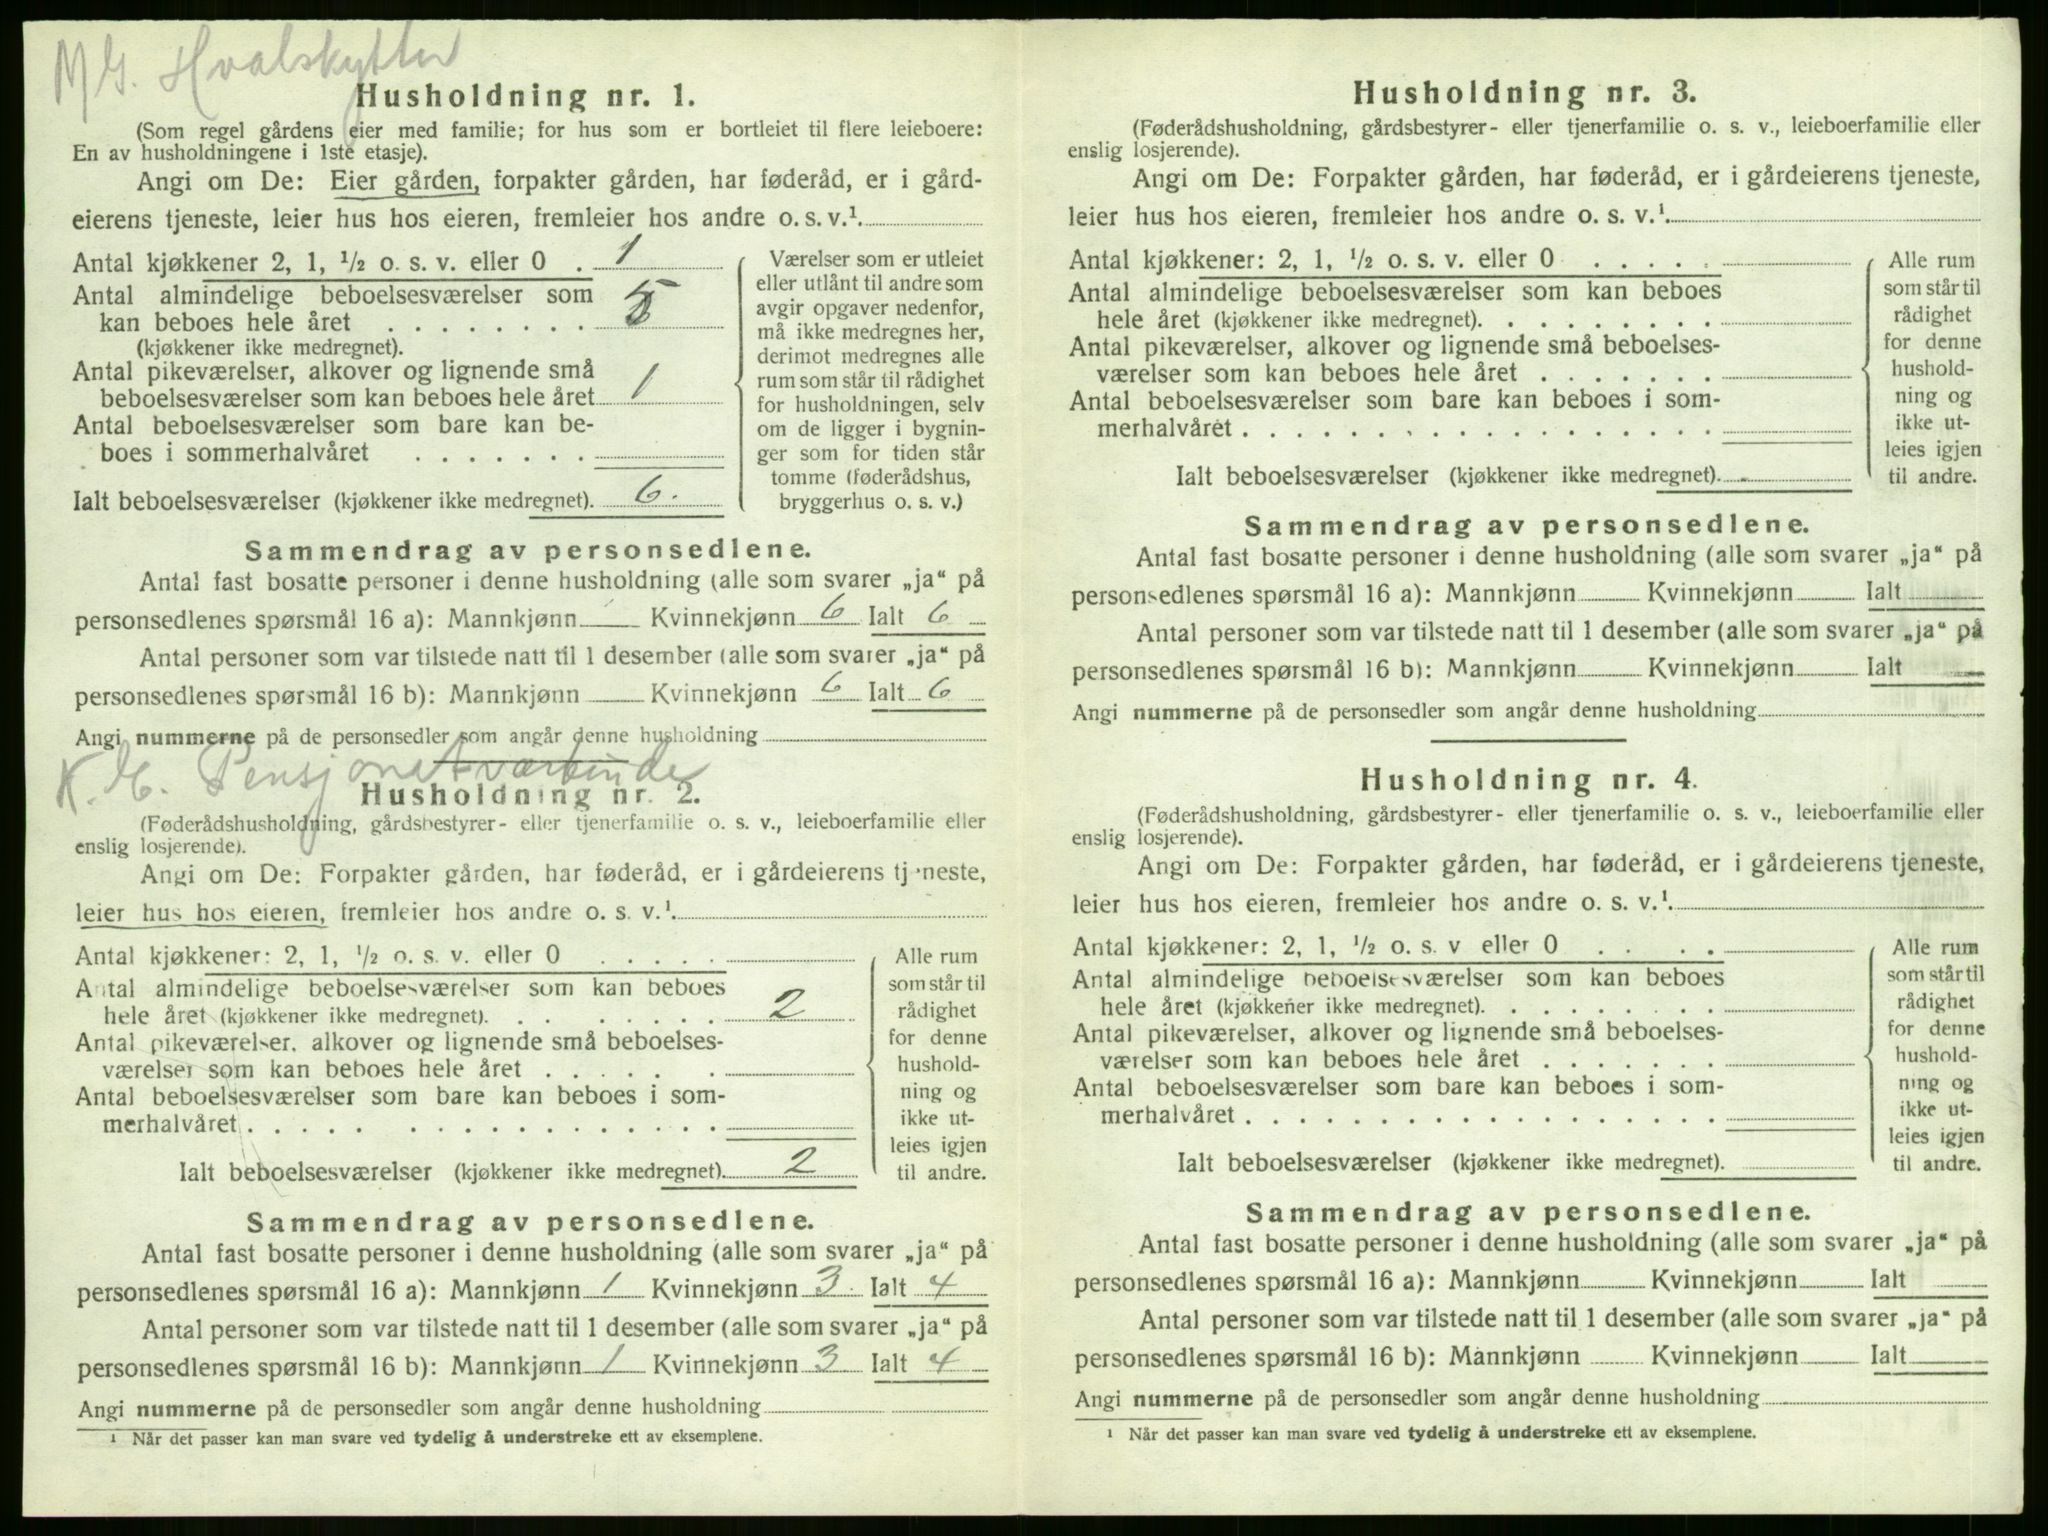 M G. Hvalskytter
Husholdning nr. 1.
(Som regel gårdens eier med familie; for hus som er bortleiet til flere leieboere:
En av husholdningene i 1ste etasje).
Angi om De: Eier gården, forpakter gården, har føderåd, er i gård-
eierens tjeneste, leier hus hos eieren, fremleier hos andre o. s. v.¹.
Antal kjøkkener 2, 1, ½ o. s. v. eller 0 . 1
Antal almindelige beboelsesværelser som
kan beboes hele året . . . . . . . . 5
(kjøkkener ikke medregnet).
Antal pikeværelser, alkover og lignende små
beboelsesværelser som kan beboes hele året 1
Antal beboelsesværelser som bare kan be-
boes i sommerhalvåret . . . . . . .
Ialt beboelsesværelser (kjøkkener ikke medregnet). 6.
Værelser som er utleiet
eller utlånt til andre som
avgir opgaver nedenfor,
må ikke medregnes her,
derimot medregnes alle
rum som står til rådighet
for husholdningen, selv
om de ligger i bygnin-
ger som for tiden står
tomme (føderådshus,
bryggerhus o. s. v.)
Sammendrag av personsedlene.
Antal fast bosatte personer i denne husholdning (alle som svarer „ja“ på
personsedlenes spørsmål 16 a): Mannkjønn — Kvinnekjønn 6 Ialt 6
Antal personer som var tilstede natt til 1 desember (alle som svarer „ja“ på
personsedlenes spørsmål 16 b): Mannkjønn Kvinnekjønn 6 Ialt 6
Angi nummerne på de personsedler som angår denne husholdning
Pensjonatværtinde
Husholdning nr. 2.
(Føderådshusholdning, gårdsbestyrer- eller tjenerfamilie o. s. v., leieboerfamilie eller
enslig losjerende).
Angi om De: Forpakter gården, har føderåd, er i gårdeierens tjeneste,
leier hus hos eieren, fremleier hos andre o. s. v.¹.
Antal kjøkkener: 2, 1, ½ o. s. v. eller 0 . . . . .
Antal almindelige beboelsesværelser som kan beboes
hele året (kjøkkener ikke medregnet). . . . . . . . 2
Antal pikeværelser, alkover og lignende små beboelses-
værelser som kan beboes hele året . . . . . . .
Antal beboelsesværelser som bare kan beboes i som-
merhalvåret . . . . . . . . . . . . . . . . . .
Ialt beboelsesværelser (kjøkkener ikke medregnet). 2
Alle rum
som står til
rådighet
for denne
hushold-
ning og
ikke ut-
leies igjen
til andre.
Sammendrag av personsedlene.
Antal fast bosatte personer i denne husholdning (alle som svarer „ja“ på
personsedlenes spørsmål 16 a): Mannkjønn 1 Kvinnekjønn 3. Ialt 4
Antal personer som var tilstede natt til 1 desember (alle som svarer „ja“ på
personsedlenes spørsmål 16 b): Mannkjønn 1 Kvinnekjønn 3 Ialt 4
Angi nummerne på de personsedler som angår denne husholdning
¹ Når det passer kan man svare ved tydelig å understreke ett av eksemplene.
Husholdning nr. 3.
(Føderådshusholdning, gårdsbestyrer- eller tjenerfamilie o. s. v., leieboerfamilie eller
enslig losjerende).
Angi om De: Forpakter gården, har føderåd, er i gårdeierens tjeneste,
leier hus hos eieren, fremleier hos andre o. s. v.¹.
Antal kjøkkener: 2, 1, ½ o. s. v. eller 0 . . . . .
Antal almindelige beboelsesværelser som kan beboes
hele året (kjøkkener ikke medregnet). . . . . . . .
Antal pikeværelser, alkover og lignende små beboelses-
værelser som kan beboes hele året . . . . . . .
Antal beboelsesværelser som bare kan beboes i som-
merhalvåret . . . . . . . . . . . . . . . . . .
Ialt beboelsesværelser (kjøkkener ikke medregnet).
Alle rum
som står til
rådighet
for denne
hushold-
ning og
ikke ut-
leies igjen
til andre.
Sammendrag av personsedlene.
Antal fast bosatte personer i denne husholdning (alle som svarer „ja“ på
personsedlenes spørsmål 16 a): Mannkjønn Kvinnekjønn Ialt
Antal personer som var tilstede natt til 1 desember (alle som svarer „ja“ på
personsedlenes spørsmål 16 b): Mannkjønn Kvinnekjønn Ialt
Angi nummerne på de personsedler som angår denne husholdning
Husholdning nr. 4.
(Føderådshusholdning, gårdsbestyrer- eller tjenerfamilie o. s. v., leieboerfamilie eller
enslig losjerende).
Angi om De: Forpakter gården, har føderåd, er i gårdeierens tjeneste,
leier hus hos eieren, fremleier hos andre o. s. v.¹.
Antal kjøkkener: 2, 1, ½ o. s. v eller 0 . . . . .
Antal almindelige beboelsesværelser som kan beboes
hele året (kjøkkener ikke medregnet). . . . . . . .
Antal pikeværelser, alkover og lignende små beboelses-
værelser som kan beboes hele året . . . . . . .
Antal beboelsesværelser som bare kan beboes i som-
merhalvåret . . . . . . . . . . . . . . . . . .
Ialt beboelsesværelser (kjøkkener ikke medregnet).
Alle rum
som står til
rådighet
for denne
hushold-
ning og
ikke ut-
leies igjen
til andre.
Sammendrag av personsedlene.
Antal fast bosatte personer i denne husholdning (alle som svarer „ja“ på
personsedlenes spørsmål 16 a): Mannkjønn Kvinnekjønn Ialt
Antal personer som var tilstede natt til 1 desember (alle som svarer „ja“ på
personsedlenes spørsmål 16 b): Mannkjønn Kvinnekjønn Ialt
Angi nummerne på de personsedler som angår denne husholdning
¹ Når det passer kan man svare ved tydelig å understreke ett av eksemplene.